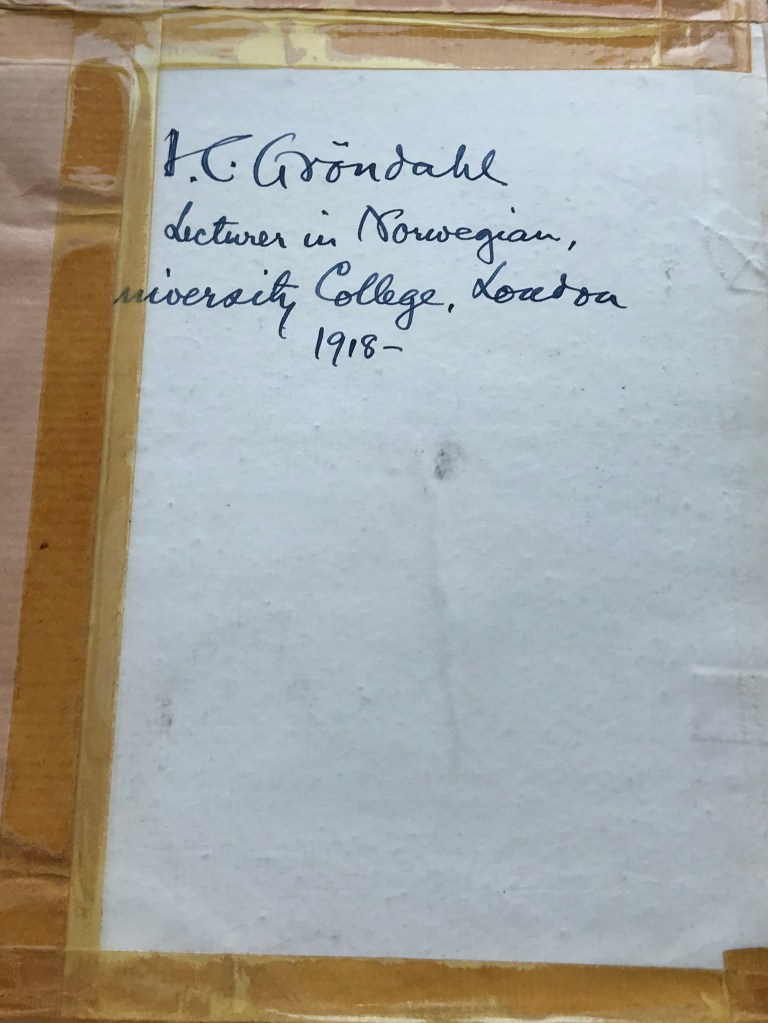 I.C. Gröndahl
Lecturer in Norwegian,
niversity College, London
1918-